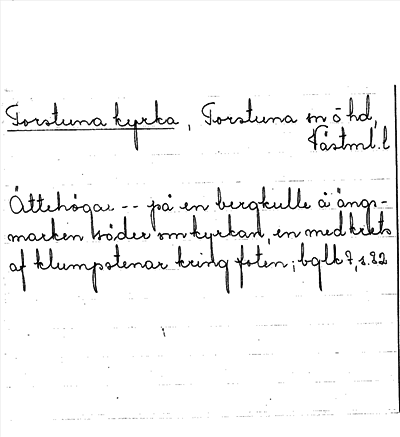 Torstuna kyrka, Torstuna sn ö hd,
Västml. l
Ättehögar -- på en bergkulle å ängs-
marken söder om kyrkan, en med krets
af klumpstenar kring foten; bglk 7, s. 82